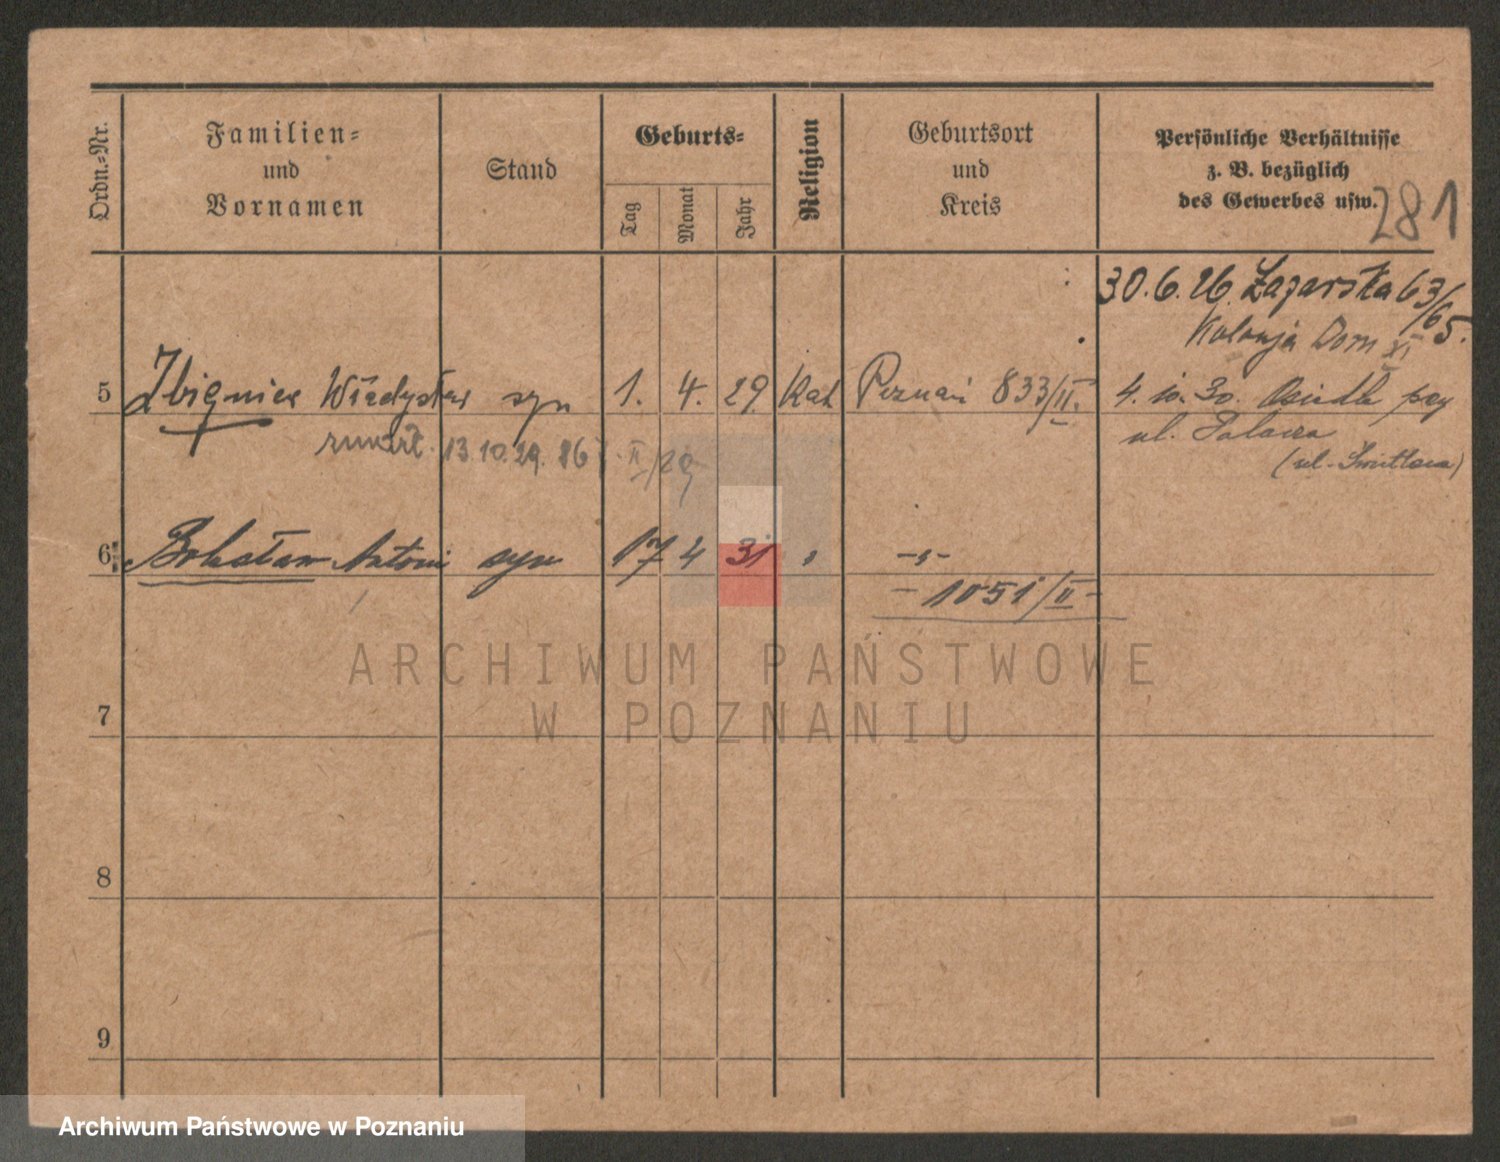 Ordn.-Nr.
Familien-
und
Vornamen
Stand
Geburts-
Tag
Monat
Jahr
Religion
Geburtsort
und
Kreis
Persönliche Verhältnisse
z. B. bezüglich
des Gewerbes usw.
281
30.6.26. Łazarska 63/65.
Kolonja Dom XI
5 Zbigniew Władysław syn 1. 4. 29. Kat Poznań 833/II.
4. 10. 30. Osiedle przy
ul.
zmarł. 13.10.29. II/29
(ul.
6 Bohosław Antoni syn 17 4 31 "
-"-
- 1051/II -
7
8
9
ARCHIWUM PAŃSTWOWE
W POZNANIU
Archiwum Państwowe w Poznaniu